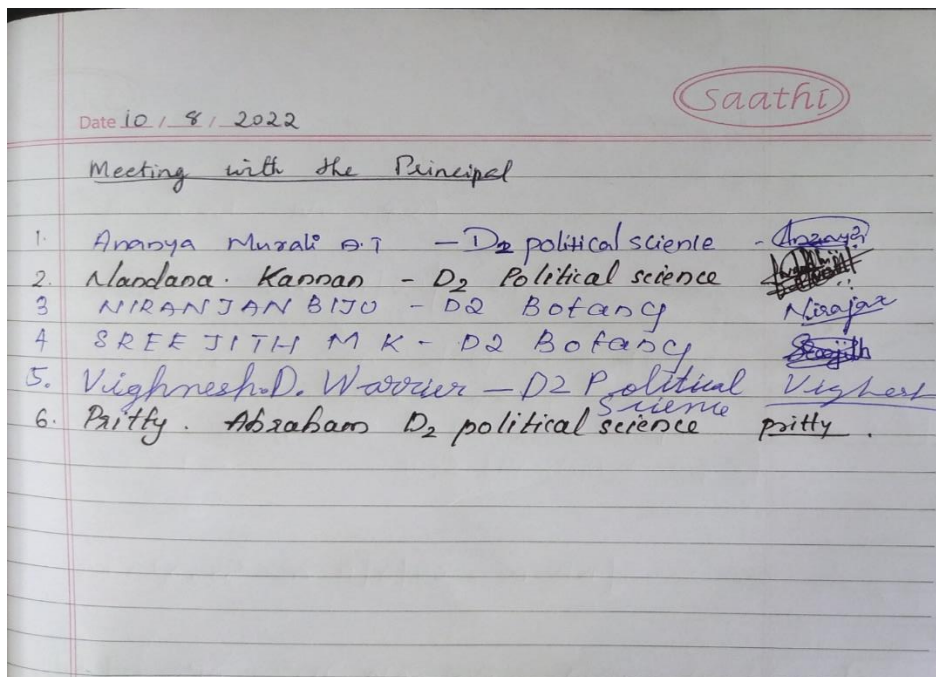 saathi
Date 10 / 8 / 2022
Meeting with the Principal
1. Ananya Murali A.T - D2 political science - Ananya
2. Nandana. Kannan - D2 Political science
3 NIRANJAN BIJU - D2 Botany Niranjan
4 SREEJITH M K - D2 Botany Sreejith
5. Vighnesh.D. Warrier - D2 Political Science Vighnesh
6. Pritty. Abraham D2 political science pritty.